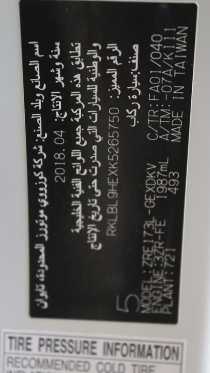 اسم الصانع وبلد الصنع: شركة كوزوي موتورز المحدودة، تايوان
سنة وشهر الانتاج: 2018.04
تطابق هذه المركبة جميع اللوائح الفنية الخليجية
والوطنية للسيارات التي صدرت حتى تاريخ الانتاج
الرقم المميز: RKLBL9HEXK5265750
صنف: سيارة ركاب
5
MODEL: ZRE173L-GEXDKV
ENGINE: 3ZR-FE 1987mL
PLANT: 721 493
C/TR: FA01/040
A/TM: -07A/
MADE IN TAIWAN
TIRE PRESSURE INFORMATION
RECOMMENDED COLD TIRE